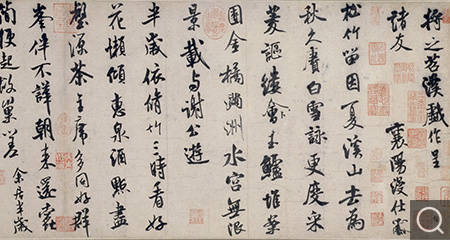 將之苕溪戲作呈
諸友
襄陽漫仕黻
松竹留因夏溪山去為
秋久賡白雪詠更度采
菱謳縷會玉鱸堆案
團金橘滿洲水宮無限
景載与謝公遊
半歲依脩竹三時看好
花懶傾惠泉酒點盡
壑源茶主席多同好群
峯伴不譁朝来還蠹
簡便起故巢嗟
余居半歲